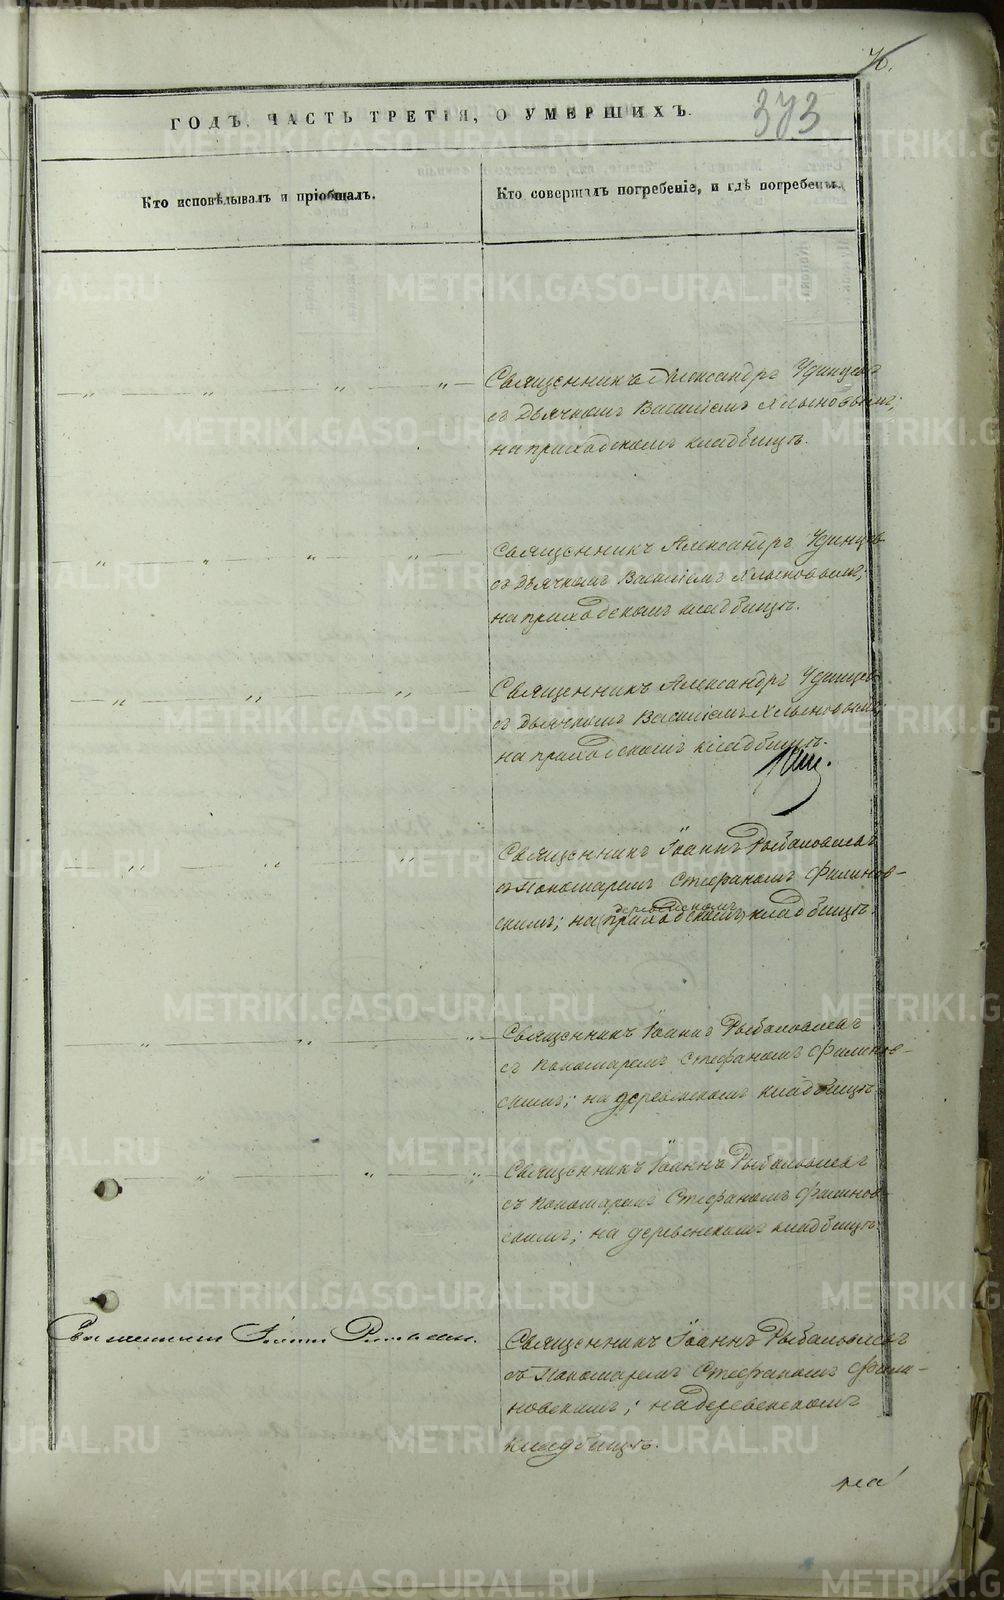 76.
373
ГОДЪ, ЧАСТЬ ТРЕТІЯ, О УМЕРШИХЪ.
Кто исповѣдывалъ и пріобщалъ.
Кто совершалъ погребеніе, и гдѣ погребены.
Священникъ Александръ Удинцевъ
съ Дьячкомъ Василіемъ Хлыновымъ;
на приходскомъ кладбищѣ.
Священникъ Александръ Удинцевъ
съ Дьячкомъ Василіемъ Хлыновымъ;
на приходскомъ кладбищѣ.
Священникъ Александръ Удинцевъ
съ Дьячкомъ Василіемъ Хлыновымъ;
на приходскомъ кладбищѣ.
Священникъ Іоаннъ Рыболовлевъ
съ Пономаремъ Стефаномъ Филинов-
деревенскомъ
скимъ; на (приходскомъ) кладбищѣ.
Священникъ Іоаннъ Рыболовлевъ
съ Пономаремъ Стефаномъ Филинов-
скимъ; на деревенскомъ кладбищѣ.
Священникъ Іоаннъ Рыболовлевъ
съ Пономаремъ Стефаномъ Филинов-
скимъ; на деревенскомъ кладбищѣ.
Священникъ Іоаннъ
Священникъ Іоаннъ Рыболовлевъ
съ Пономаремъ Стефаномъ Фили-
новскимъ; на деревенскомъ
кладбищѣ.
METRIKI.GASO-URAL.RU